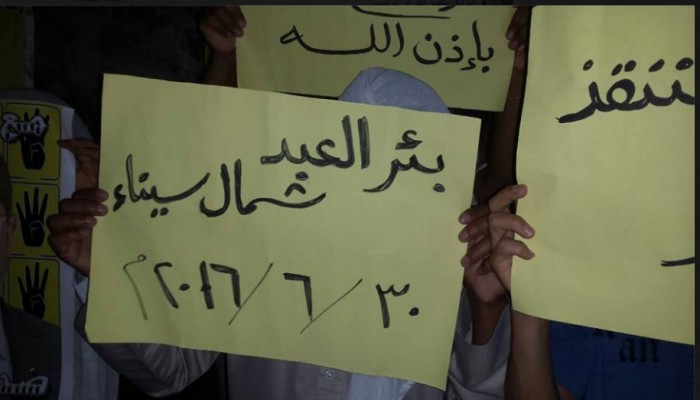 بإذن الله
بئر العبد
شمال سيناء
٣٠/٦/٢٠١٦م
an